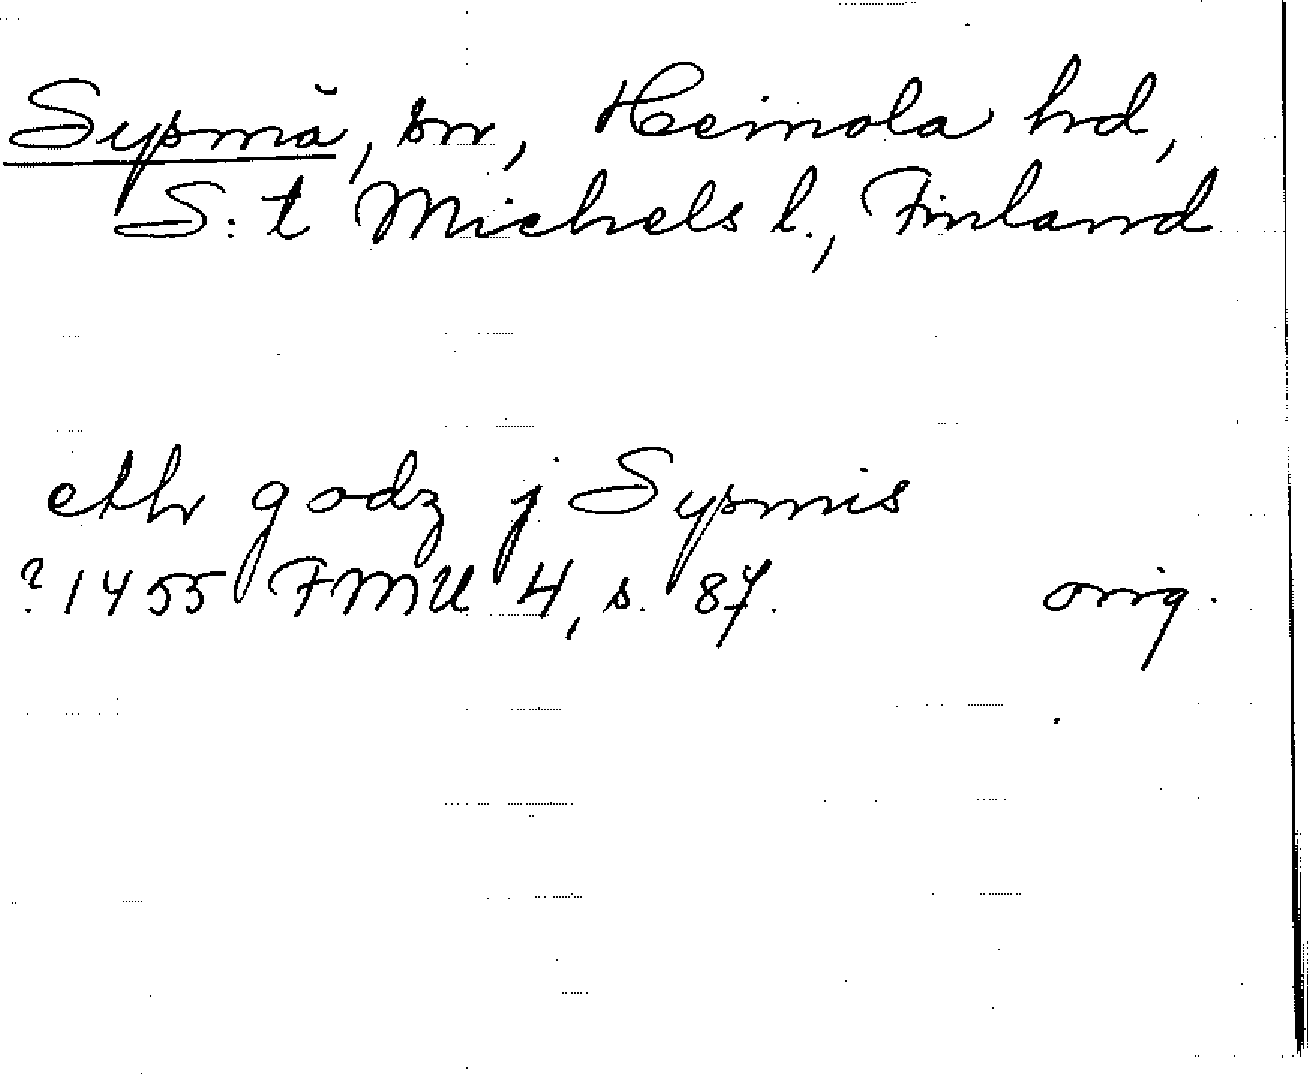 Sysmä, sn, Heinola hd,
S:t Michels l., Finland
eth godz j Sysmis
?1455 FMU 4, s. 87. orig.